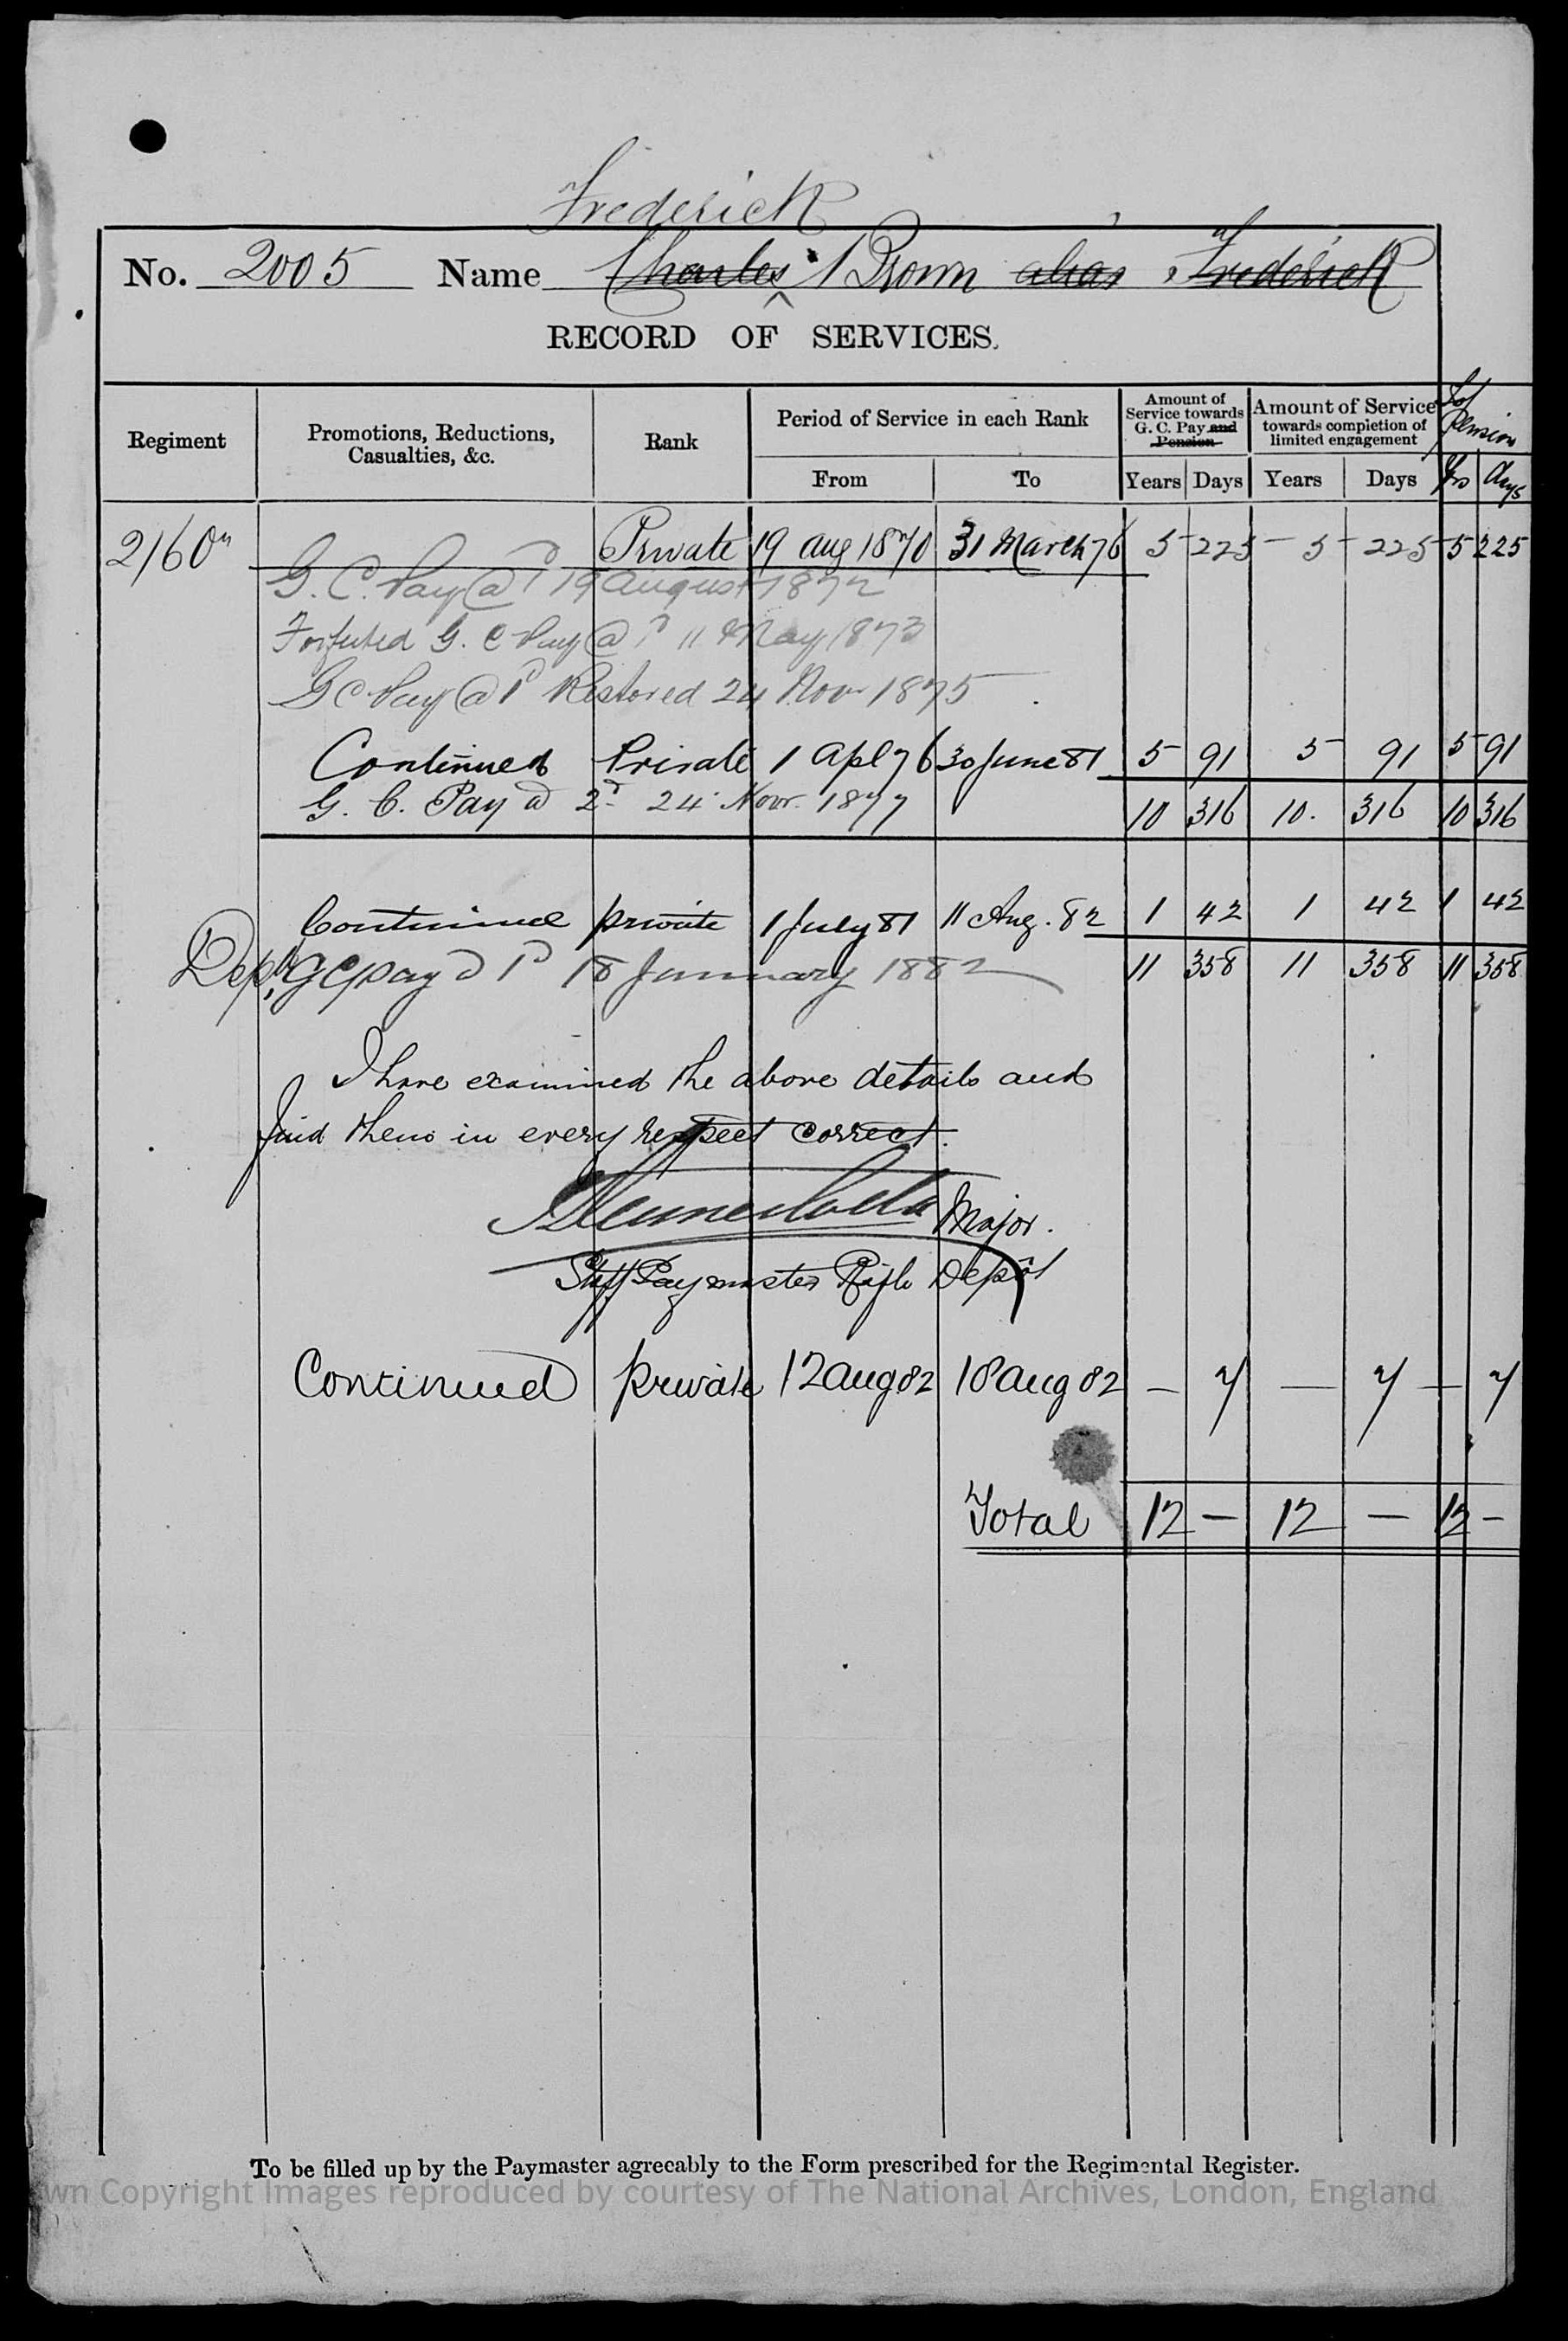 Frederick
No. 2005 Name Charles Brown alias Frederick
RECORD OF SERVICES.
Regiment
Promotions, Reductions, Casualties, &c.
Rank
Period of Service in each Rank
From
To
Amount of Service towards G. C. Pay and Pension
Amount of Service towards completion of limited engagement
Pension
Years Days Years Days Yrs days
2/60th Private 19 Aug 1870 31 March 76 5 225 5 225 5 225
G. C. Pay @ 1d 19 August 1872
Forfeited G. C Pay @ 1d 11 May 1873
G C Pay @ 1d Restored 24 Nov 1875
Continued Private 1 Apl 76 30 June 81 5 91 5 91 5 91
G. C. Pay @ 2d 24 Novr. 1877
10 316 10. 316 10 316
Continued private 1 July 81 11 Aug. 82 1 42 1 42 1 42
G C pay @ 1d 18 January 1882 11 358 11 358 11 358
I have examined the above details and
find them in every respect correct.
Major.
Staff Paymaster Rifle Depôt
Continued private 12 aug 82 18 aug 82 — 7 — 7 — 7
Total 12 — 12 — 12 —
To be filled up by the Paymaster agreeably to the Form prescribed for the Regimental Register.
wn Copyright Images reproduced by courtesy of The National Archives, London, England